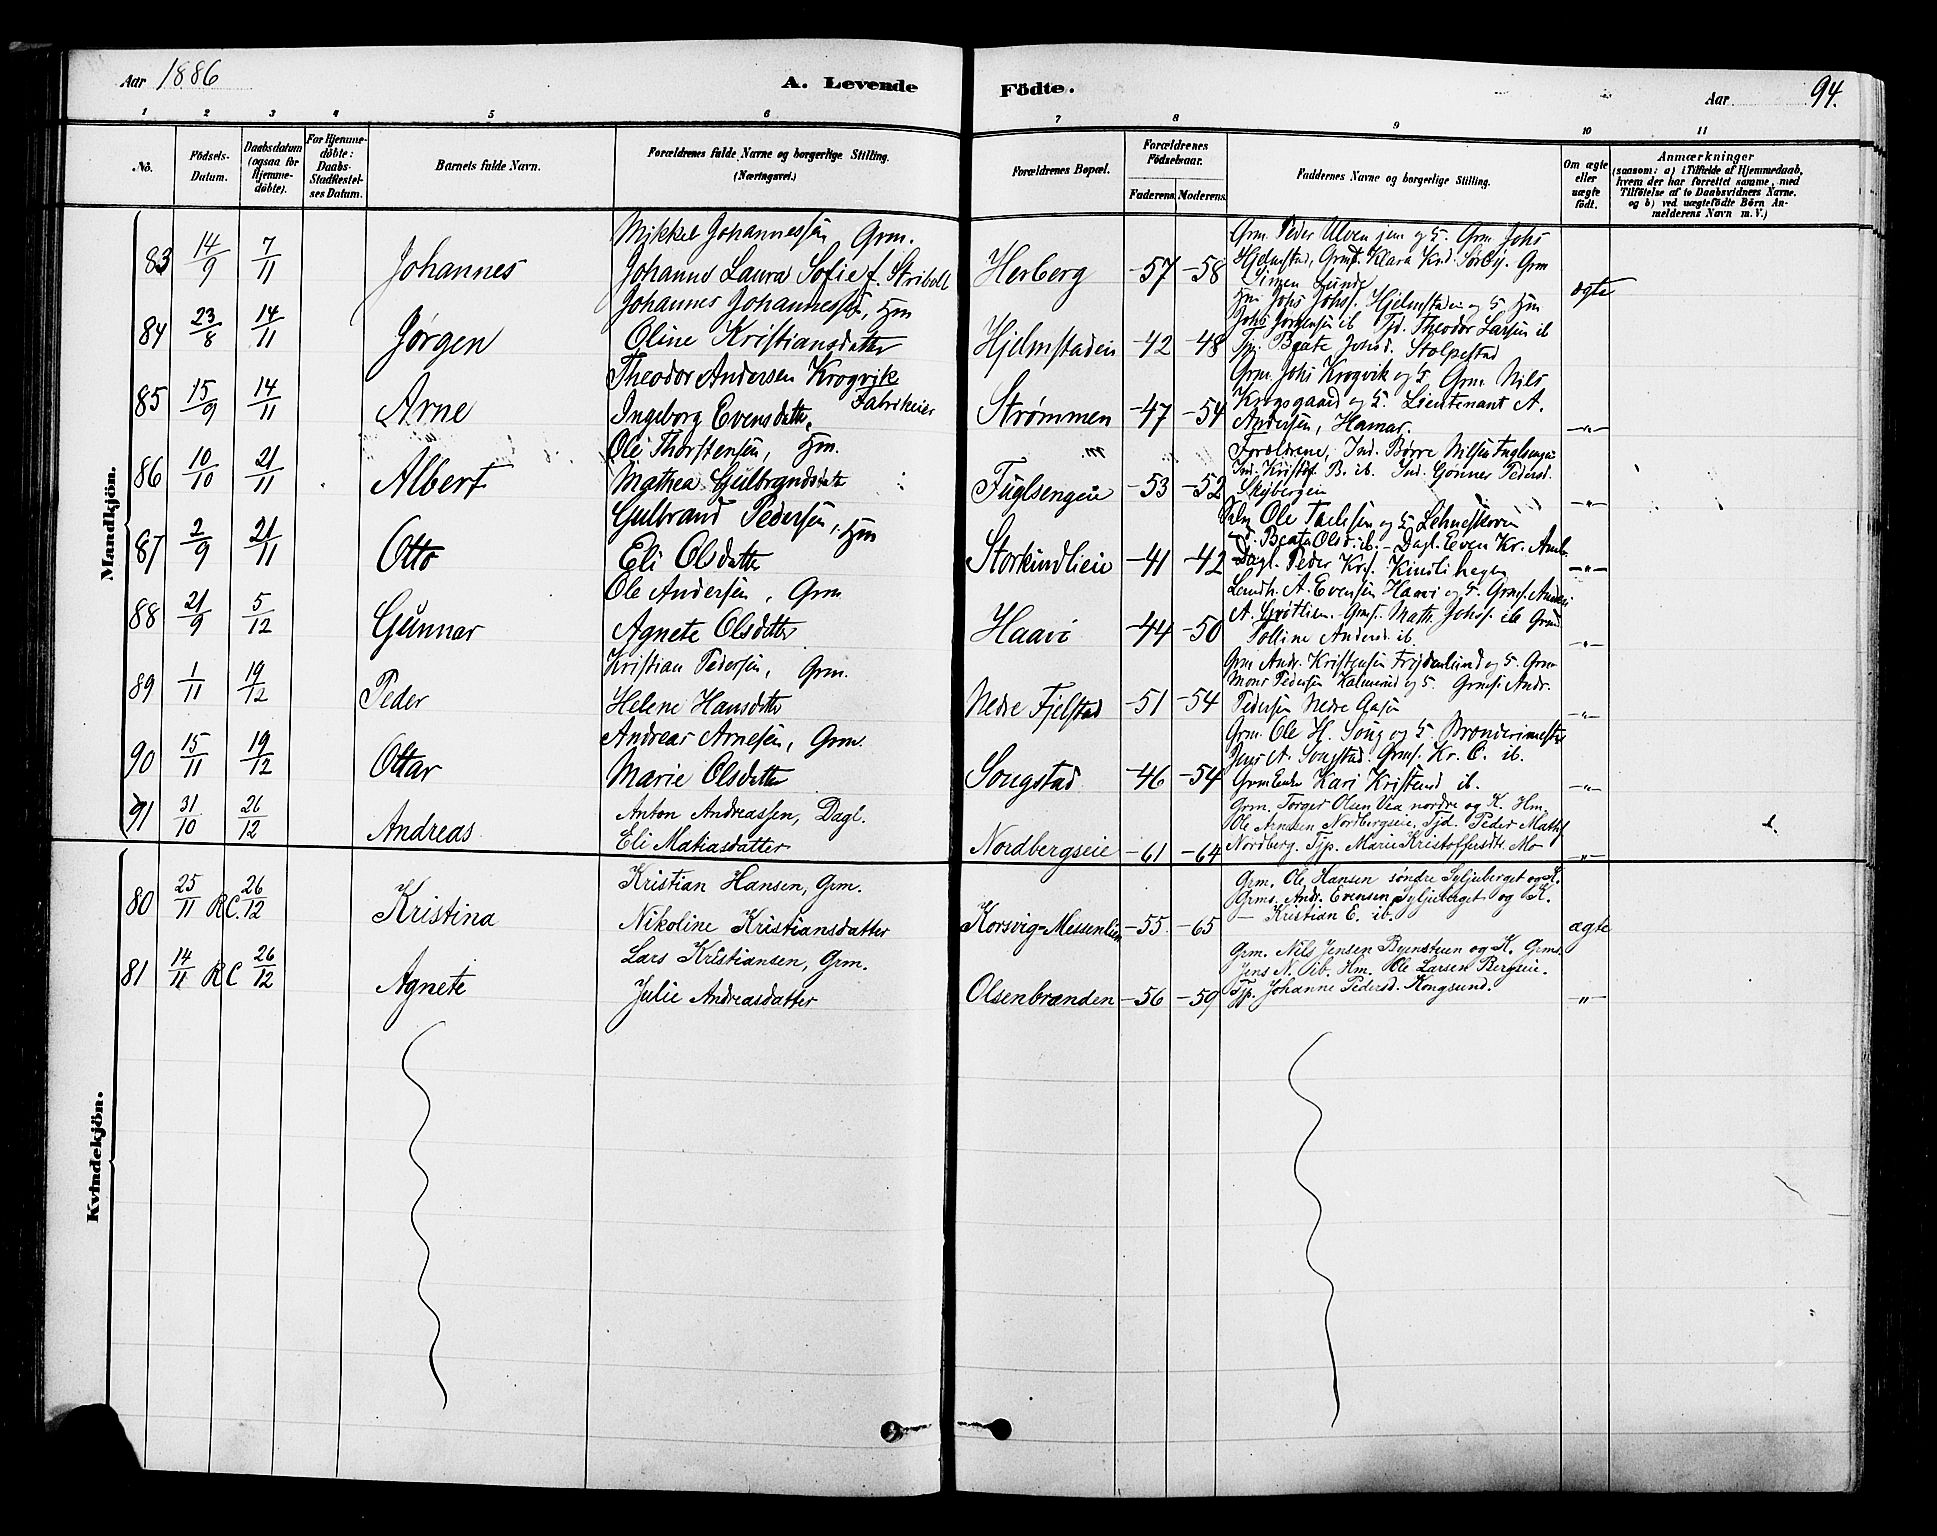 Aar 1886
A. Levende Födte.
Aar 94.
1 2 3 4 5 6 7 8 9 10 11
No.
Fødsels-Datum.
Daabsdatum (ogsaa for Hjemme-døbte).
For Hjemme-døbte: Daabs-Stadfæstelses Datum.
Barnets fulde Navn.
Forældrenes fulde Navne og borgerlige Stilling. (Næringsvei.)
Forældrenes Bopæl.
Forældrenes Fødselsaar.
Faderens. Moderens.
Faddernes Navne og borgerlige Stilling.
Om ægte eller uægte født.
Anmærkninger
(saasom: a) i Tilfælde af Hjemmedaab, hvem der har forrettet samme, med Tilføielse af to Daabsvidners Navne. og b) ved uægtefødte Børn Anmelderens Navn m. V.)
Mandkjön.
83 14/9 7/11 Johannes
Mikkel Johannessen Grm.
Johanne Laura Sofie f. Stribolt
Herberg -57 -58
Grm. Peder Ulven jun og 5. Grm Johs
Hjelmstad, Grmf. Klara Knd. Sørby. Grm
Simen Lunde
ægte
84 23/8 14/11 Jørgen
Johannes Johannessen, Hm
Oline Kristiansdatter
Hjelmstadeie -42 -48
Hm Johs Johsf. Hjelmstadeie og 5 Hm
Johs Jørgensen ib Tjd. Theodor Larsen ib
Tp. Beate Johsd. Stolpestad
85 15/9 14/11 Arne
Theodor Andersen Krogvik
Fabrikeier
Ingeborg Evensdatter
Strømmen -47 -54
Grm. Johs Krogvik og 5 Grm Nils
Krogsgaard og 5. Lieutenant A.
Andersen, Hamar.
-"-
86 10/10 21/11 Albert
Ole Thorstensen, Hm.
Mathea Gulbrandsdate
Fuglsengeie -53 -52
Forældrene, Ind. Børre Nilsen Fuglsengeie
Ind. Kristof. B. ib. Ind. Gønner Pedersd.
Skybergeie
-"-
87 2/9 21/11 Otto
Gulbrand Pedersen, Hm
Eli Olsdatter
Storkindlieie -41 -42
Ole
Beate Olsd. ib. - Dagl. Even Kr. Amb.
Dagl. Peder Krs. Kindlihagen
-"-
88 21/9 5/12 Gunnar
Ole Andersen, Grm
Agnete Olsdatter
Haavi -44 -50
Lendh. A. Evensen Haavi og 5. Grmf. Anders
A. Grøtlien. Grmf. Math. Johsf. ib Grmd
Polline Andersd. ib
-"-
89 1/11 19/12 Peder
Kristian Pedersen, Grm.
Helene Hansdatter
Nedre Fjelstad -51 -54
Grm Andr. Kristensen Frydenlund og 5. Grm
Mons Pedersen Kalmerud og 5. Grmf. Andr.
Pedersen Nedre Aasen
-"-
90 15/11 19/12 Ottar
Andreas Arnesen, Grm.
Marie Olsdatter
Songstad -46 -54
Grm. Ole H. Song og 5. Brænderimester
Jens A. Songstad. Grmf. Kr. O. ib.
GrmEnke Kari Kristensd ib.
-"-
91 31/10 26/12 Andreas
Anton Andreassen, Dagl.
Eli Matiasdatter
Nordbergseie -61 -64
Grm. Torger Olsen Vea nordre og K. Hm.
Ole Arnesen Nordbergseie, Tjd. Peder Mathsf
Nordberg. Tjp. Marie Kristoffersdtr. Mo
"
Kvindekjön.
80 25/11 RC. 26/12 Kristina
Kristian Hansen, Grm.
Nikoline Kristiansdatter
Korsvig-Messenlien -55 -65
Grm. Ole Hansen søndre Syljuberget og K.
Grms. Andr. Evensen Syljuberget og K.
- Kristian E. ib.
ægte
81 14/11 RC 26/12 Agnete
Lars Kristiansen, Grm.
Julie Andreasdatter
Olsenbrænden -56 -59
Grm. Nils Jensen Byenstuen og K. Grms.
Jens N. ib. Hm. Ole Larsen Bergseie.
Tjp. Johanne Pedersd. Kongsund.
-"-